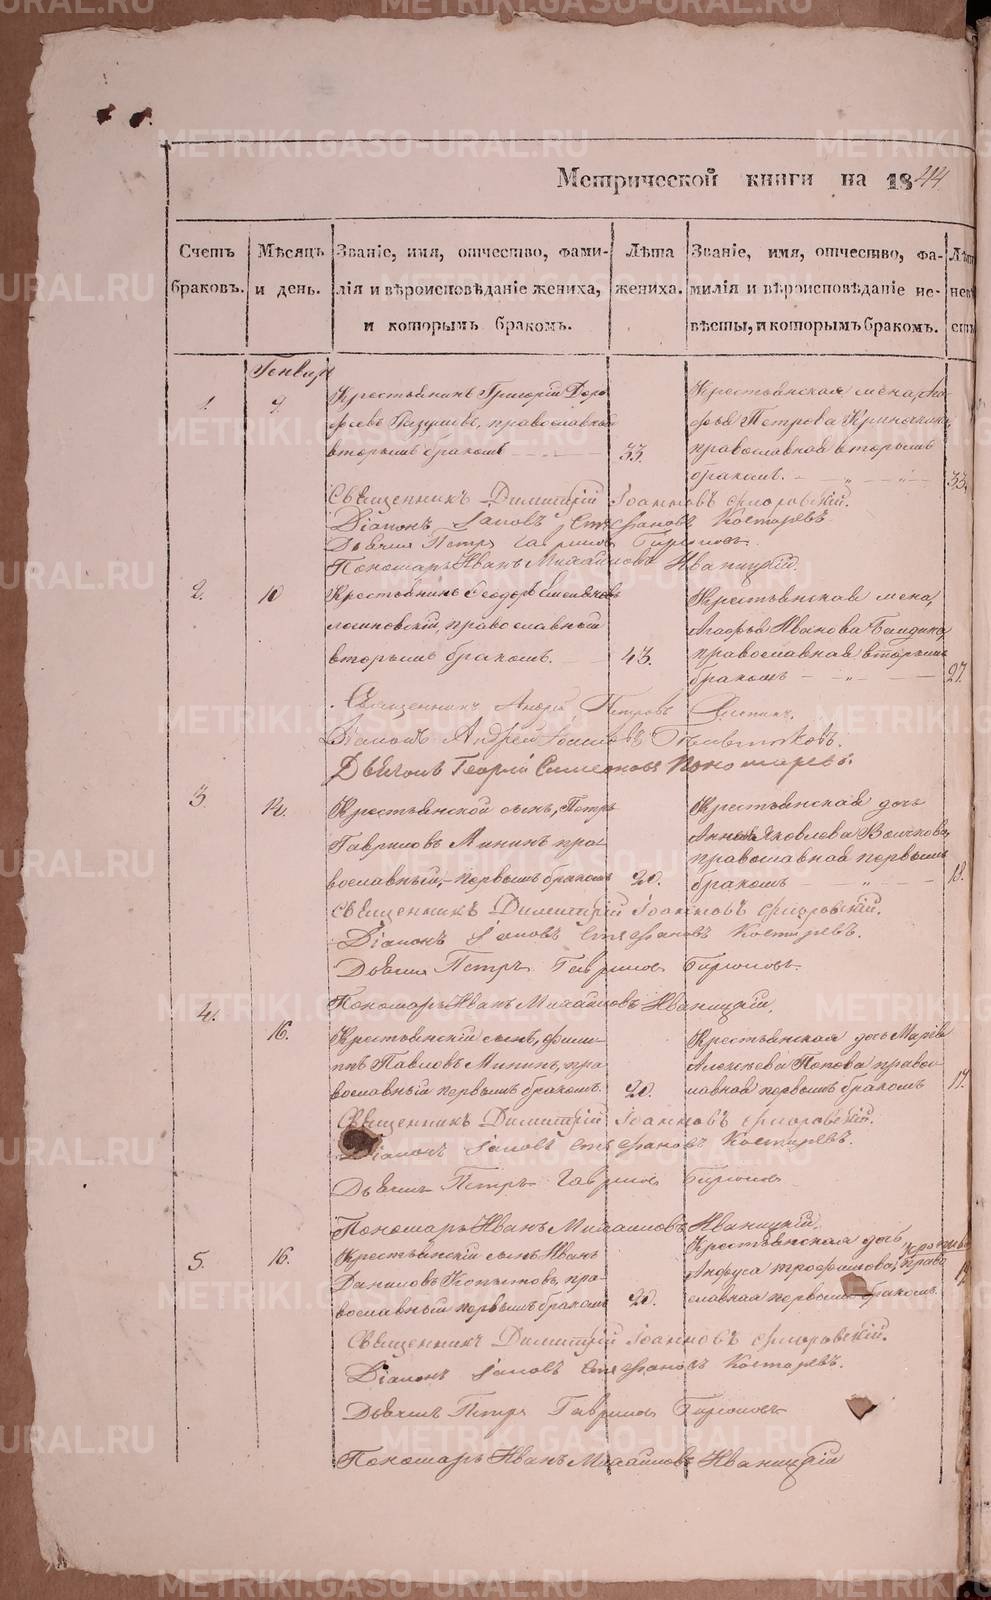 Метрической книги на 1844
Счетъ браковъ.
Мѣсяцъ и день.
Званіе, имя, отчество, фами-
лія и вѣроисповѣданіе жениха,
и которымъ бракомъ.
Лѣта
жениха.
Званіе, имя, отчество, фа-
милія и вѣроисповѣданіе не-
вѣсты, и которымъ бракомъ.
Генварь
1. 9.
Крестьянинъ Григорій Доро
феевъ православный
вторымъ бракомъ 33.
Крестьянская жена, Ма
рфа Петрова
православная вторымъ
бракомъ. 33.
Священникъ Димитрій Іоанновъ Флоровскій.
Діаконъ Іаковъ Стефановъ Костаревъ
Дьячекъ Петръ Гавриловъ Бирюковъ
Пономарь Иванъ Михайловъ Иваницкій.
2. 10
Крестьянинъ Феодоръ Семеновъ
православный
вторымъ бракомъ. 43.
Крестьянская жена,
Агафья Иванова
православная вторымъ
бракомъ 27.
Священникъ Андрей Петровъ
Діаконъ Андрей
Дьячекъ Георгій Симеоновъ Пономаревъ.
3 12.
Крестьянской сынъ, Петръ
Гавриловъ Мининъ пра
вославный, первымъ бракомъ 20.
Крестьянская дочь
Анна Яковлева Волчкова,
православная первымъ
бракомъ 18.
Священникъ Димитрій Іоанновъ Флоровскій.
Діаконъ Іаковъ Стефановъ Костаревъ.
Дьячекъ Петръ Гавриловъ Бирюковъ.
Пономарь Иванъ Михайловъ Иваницкій.
4. 16.
Крестьянскій сынъ, Фили
ппъ Павловъ Мининъ, пра
вославный первымъ бракомъ. 20.
Крестьянская дочь Марія
Алексѣева Попова право
славная первымъ бракомъ 17.
Священникъ Димитрій Іоанновъ Флоровскій.
Діаконъ Іаковъ Стефановъ Костаревъ.
Дьячекъ Петръ Гавриловъ Бирюковъ
Пономарь Иванъ Михайловъ Иваницкій.
5. 16.
Крестьянскій сынъ Иванъ
Даниловъ Копытовъ, пра
вославный первымъ бракомъ 20.
Крестьянская дочь
Анфуса Трофимова, право
славная первымъ бракомъ.
Священникъ Димитрій Іоанновъ Флоровскій.
Діаконъ Іаковъ Стефановъ Костаревъ.
Дьячекъ Петръ Гавриловъ Бирюковъ
Пономарь Иванъ Михайловъ Иваницкій
METRIKI.GASO-URAL.RU